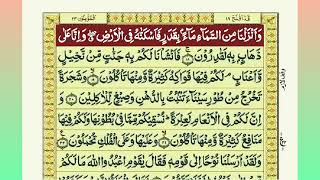 قد افلح ١٨
المؤمنون ٢٣
وَاَنْزَلْنَا مِنَ السَّمَآءِ مَآءًۢ بِقَدَرٍ فَاَسْكَنّٰهُ فِی الْاَرْضِ ۖۗ وَاِنَّا عَلٰی
ذَهَابٍۭ بِهٖ لَقٰدِرُوْنَ ۝ فَاَنْشَاْنَا لَكُمْ بِهٖ جَنّٰتٍ مِّنْ نَّخِیْلٍ
وَّاَعْنَابٍ ۘ لَكُمْ فِیْهَا فَوَاكِهُ كَثِیْرَةٌ وَّمِنْهَا تَاْكُلُوْنَ ۝ وَشَجَرَةً
تَخْرُجُ مِنْ طُوْرِ سَیْنَآءَ تَنْۢبُتُ بِالدُّهْنِ وَصِبْغٍ لِّلْاٰكِلِیْنَ ۝
وَاِنَّ لَكُمْ فِی الْاَنْعَامِ لَعِبْرَةً ؕ نُسْقِیْكُمْ مِّمَّا فِیْ بُطُوْنِهَا وَلَكُمْ فِیْهَا
مَنَافِعُ كَثِیْرَةٌ وَّمِنْهَا تَاْكُلُوْنَ ۝ وَعَلَیْهَا وَعَلَی الْفُلْكِ تُحْمَلُوْنَ ۝
وَلَقَدْ اَرْسَلْنَا نُوْحًا اِلٰی قَوْمِهٖ فَقَالَ یٰقَوْمِ اعْبُدُوا اللّٰهَ مَا لَكُمْ